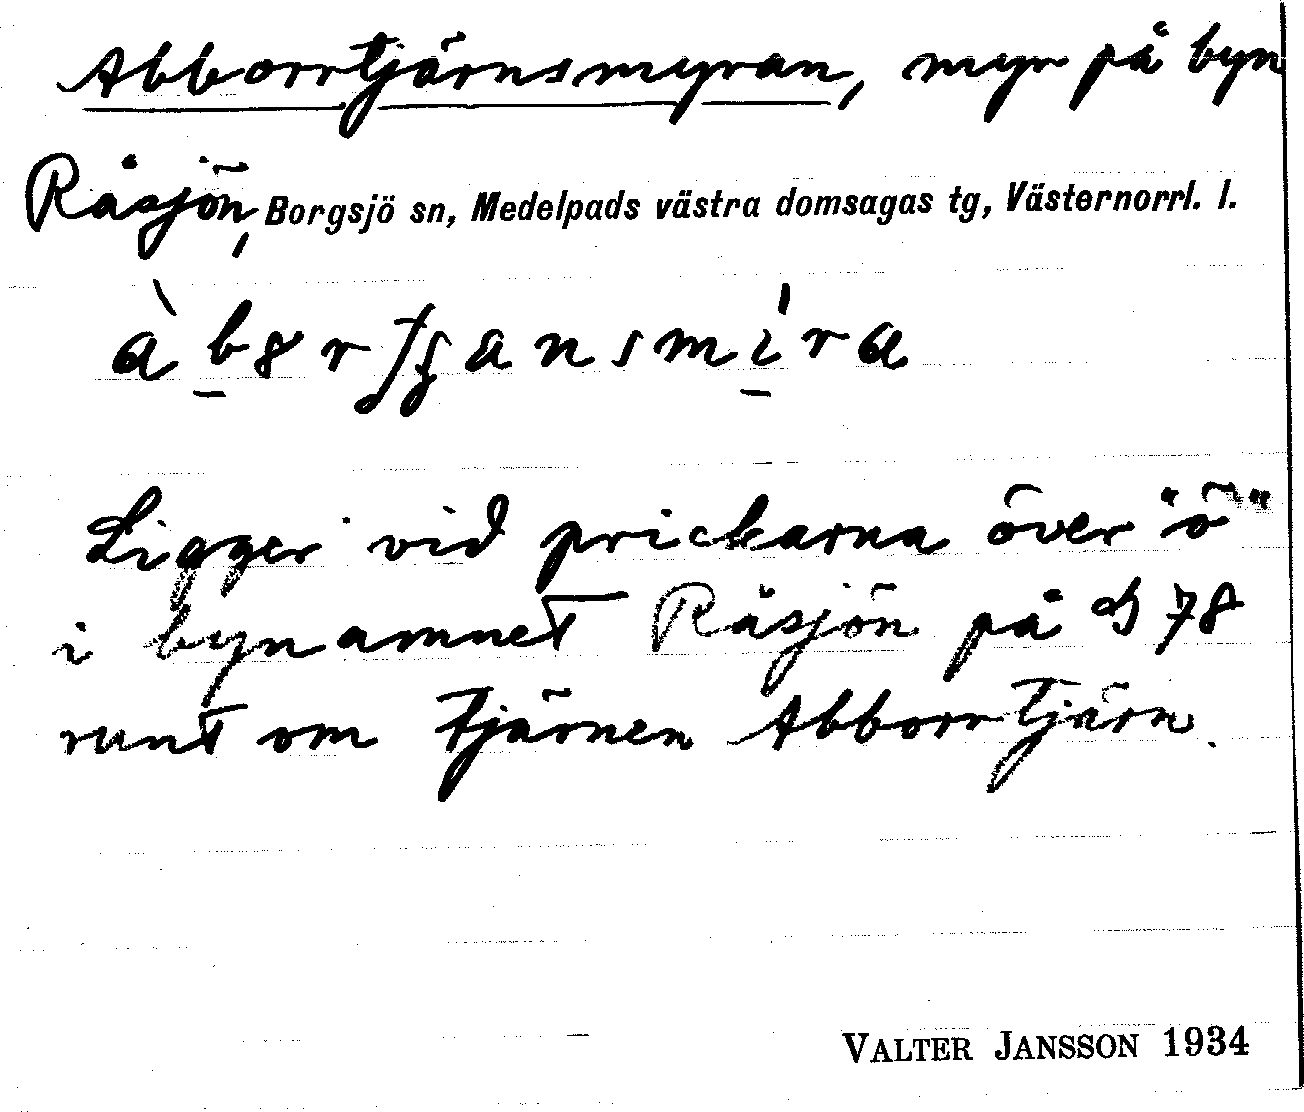 Abborrtjärnsmyran, myr på byn
Råsjön, Borgsjö sn, Medelpads västra domsagas tg, Västernorrl. l.
Ligger vid prickarna över "ö"
i bynamnet Råsjön på 78
runt om tjärnen Abborrtjärn.
VALTER JANSSON 1934